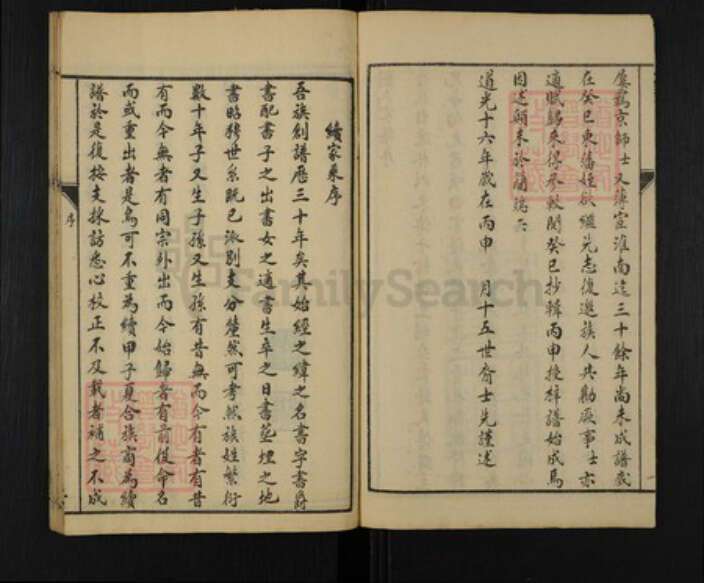 屢羈京師士又薄宦淮南迄三十餘年尚未成譜歲
在癸巳東藩姪欲繼先志復邀族人共勷厥事士亦
適賦歸來得參校閱癸巳抄輯丙申授梓譜始成焉
因述顛末於簡端云
道光十六年歲在丙申 月十五世裔士先謹述
續家乘序
吾族創譜歷三十年矣其始經之緯之名書字書爵
書配書子之出書女之適書生卒之日書塟埋之地
書昭穆世系既已派別支分釐然可考然族姓繁衍
數十年子又生子孫又生孫有昔無而今有者有昔
有而今無者有同宗外出而今始歸者有前後命名
而或重出者是烏可不重為續甲子夏合族商為續
譜於是復按支採訪悉心校正不及載者補之不成
序
FamilySearch